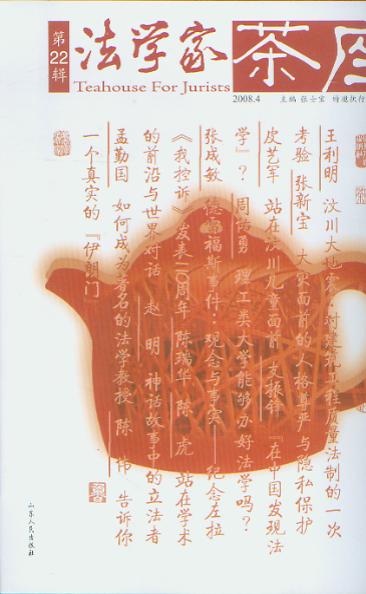 第
22
辑
法学家
茶座
Teahouse For Jurists
2008.4
主编 张士宝
王利明 汶川大地震：对建筑工程质量法制的一次
考验 张新宝 大灾面前的人格尊严与隐私保护
皮艺军 站在汶川儿童面前 支振锋 『在中国发现法
学』？ 周 勇 理工类大学能够办好法学吗？
张成敏 德雷福斯事件：观念与事实——纪念左拉
《我控诉》发表一一〇周年 陈瑞华 陈 虎 站在学术
的前沿与世界对话 赵 明 神话故事中的立法者
孟勤国 如何成为著名的法学教授 陈 伟 告诉你
一个真实的『伊朗门
山东人民出版社